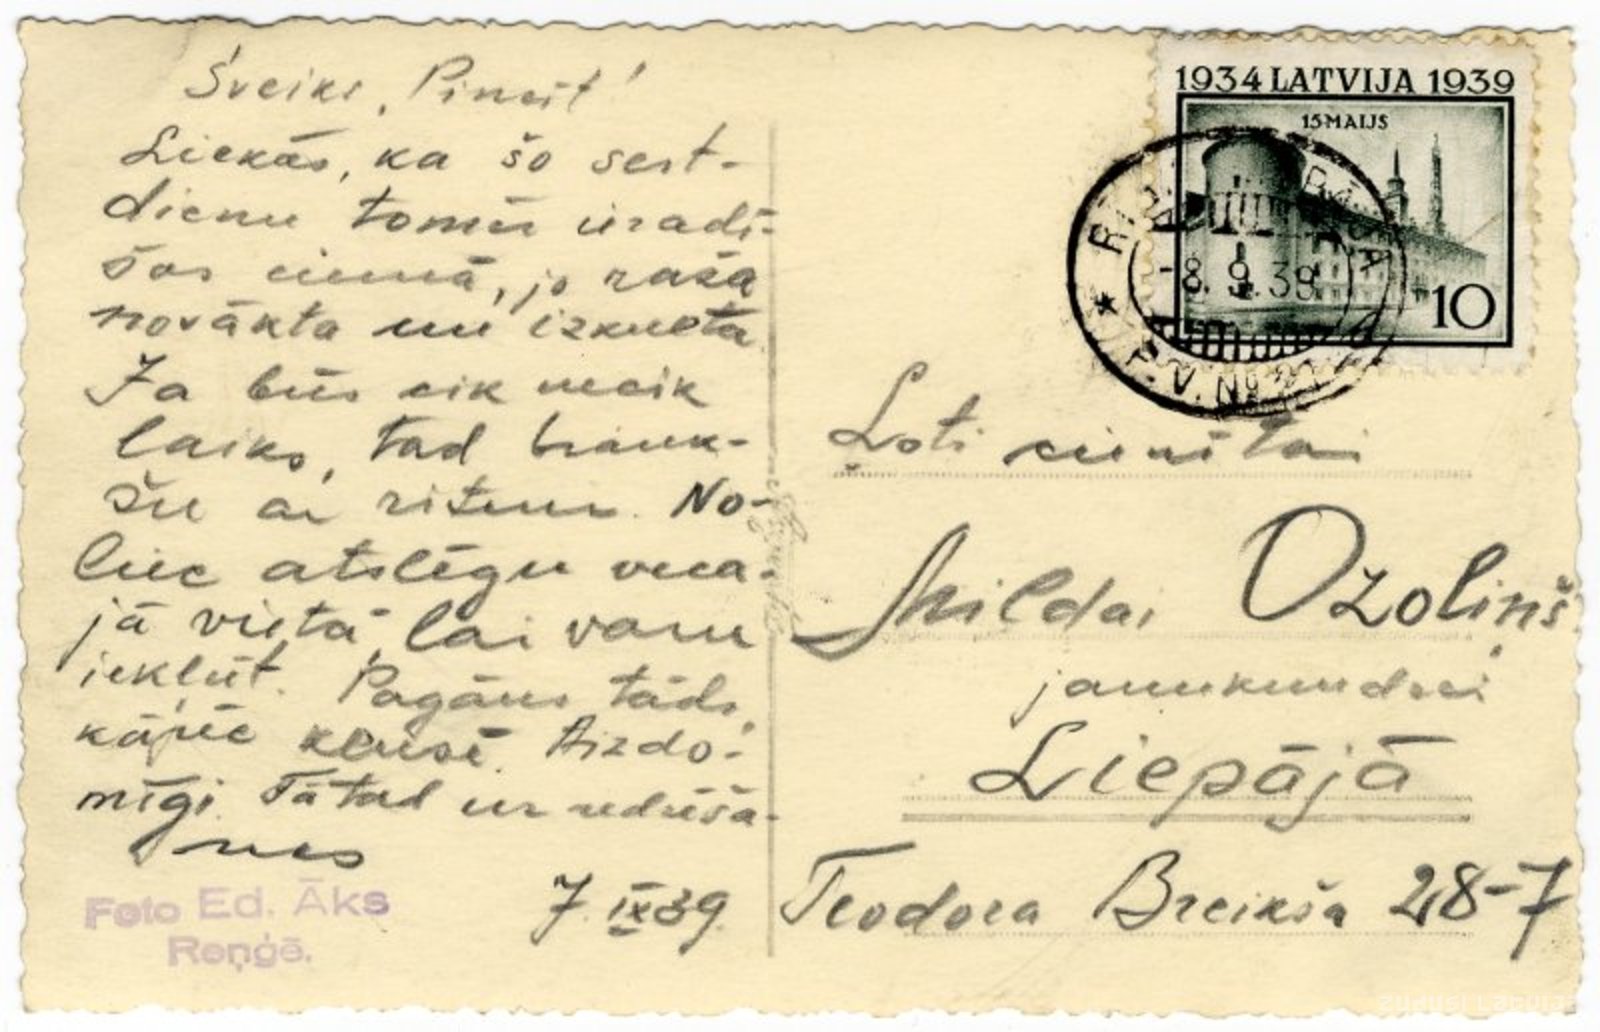 Sveiks, Pincit!
Liekās, ka šo sest-
dienu tomēr izradī-
šos ciemā, jo raža
novākta un izkulta.
Ja būs cik necik
laiks, tad brauk-
šu ar riteni. No-
liec atslēgu veca-
jā vietā, lai varu
iekļūt. Pagāns tāds,
kāpēc klusē. Aizdo-
mīgi. Tātad uz redzēša-
nos
7. IX 39.
Foto Ed. Āks
Reņģē.
1934 LATVIJA 1939
15 MAIJS
10
RĪGA
-8. 9. 39
Ļoti cienītai
Mildai Ozoliņš
jaunkundzei
Liepājā
Teodora Breikša 28-7
zudusi Latvija